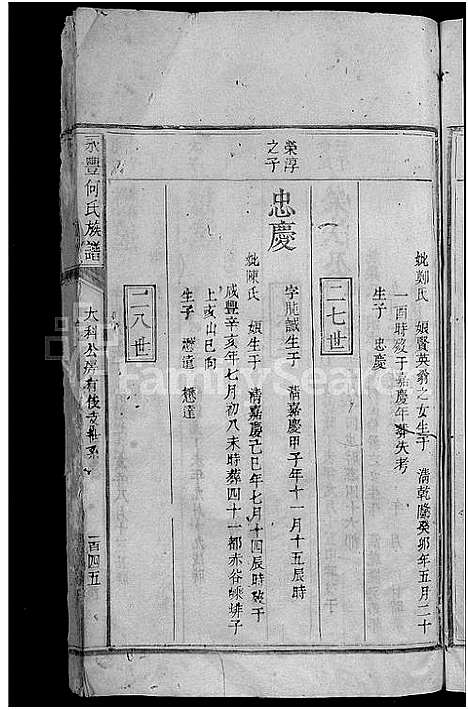 妣鄭氏 娘賢英翁之女生于 清乾隆癸卯年五月二十
一酉時歿于嘉慶年葬失考
生子 忠慶
二七世
榮淳
之子
忠慶
字龍誠生于 清嘉慶甲子年十一月十五辰時
妣陳氏 娘生于 清嘉慶己巳年七月十四辰時歿于
咸豐辛亥年七月初八未時葬四十一都赤谷 排子
上亥山巳向
生子
二八世
永豐何氏族譜
大科公房有 系
一百四五
FamilySearch